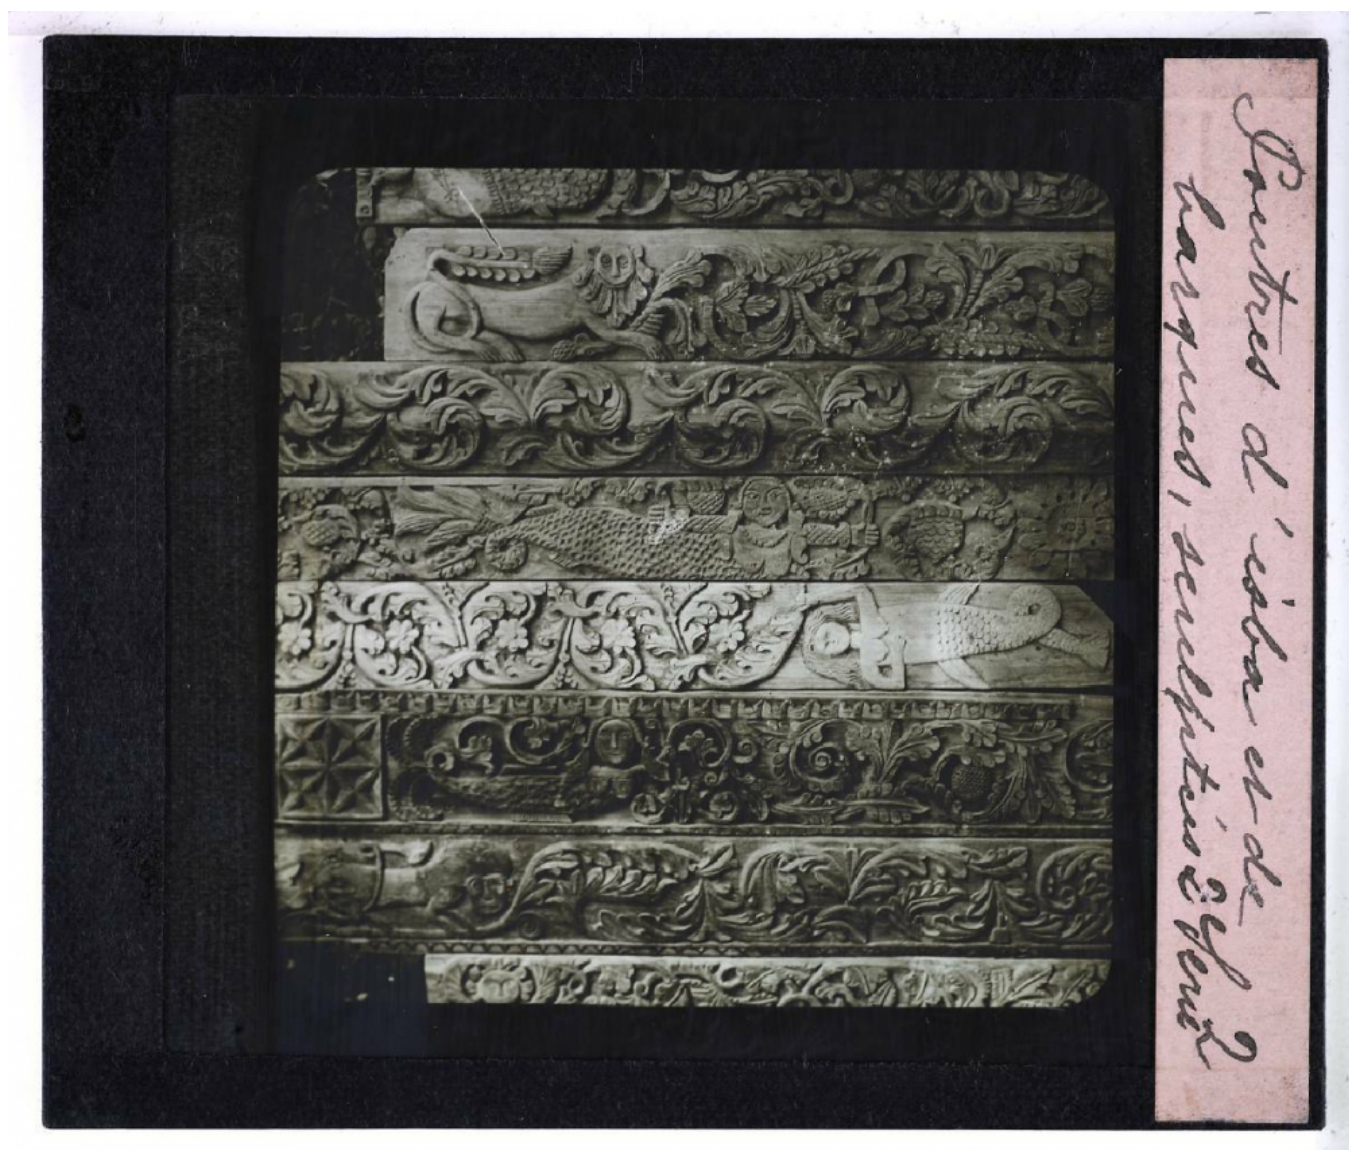 Poutres d'isba et de
barques, sculptées
2